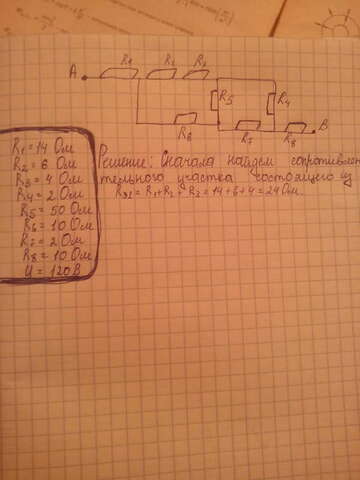 R₁ R₂ R₃
A
R₅ R₄
B
R₆ R₇ R₈
R₁ = 14 Ом
R₂ = 6 Ом
R₃ = 4 Ом
R₄ = 2 Ом
R₅ = 50 Ом
R₆ = 10 Ом
R₇ = 2 Ом
R₈ = 10 Ом
U = 120 В
Решение: Сначала найдем сопротивлен
тельного участка состоящего из
= R₁ + R₂ + R₃ = 14 + 6 + 4 = 24 Ом.